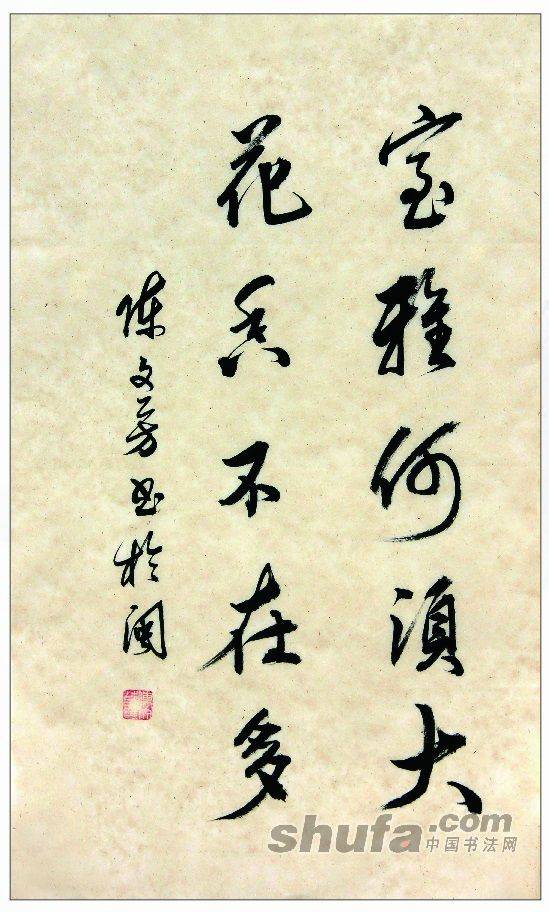 室雅何須大
花香不在多
陈文芳书於闽
shufa.com
中国书法网